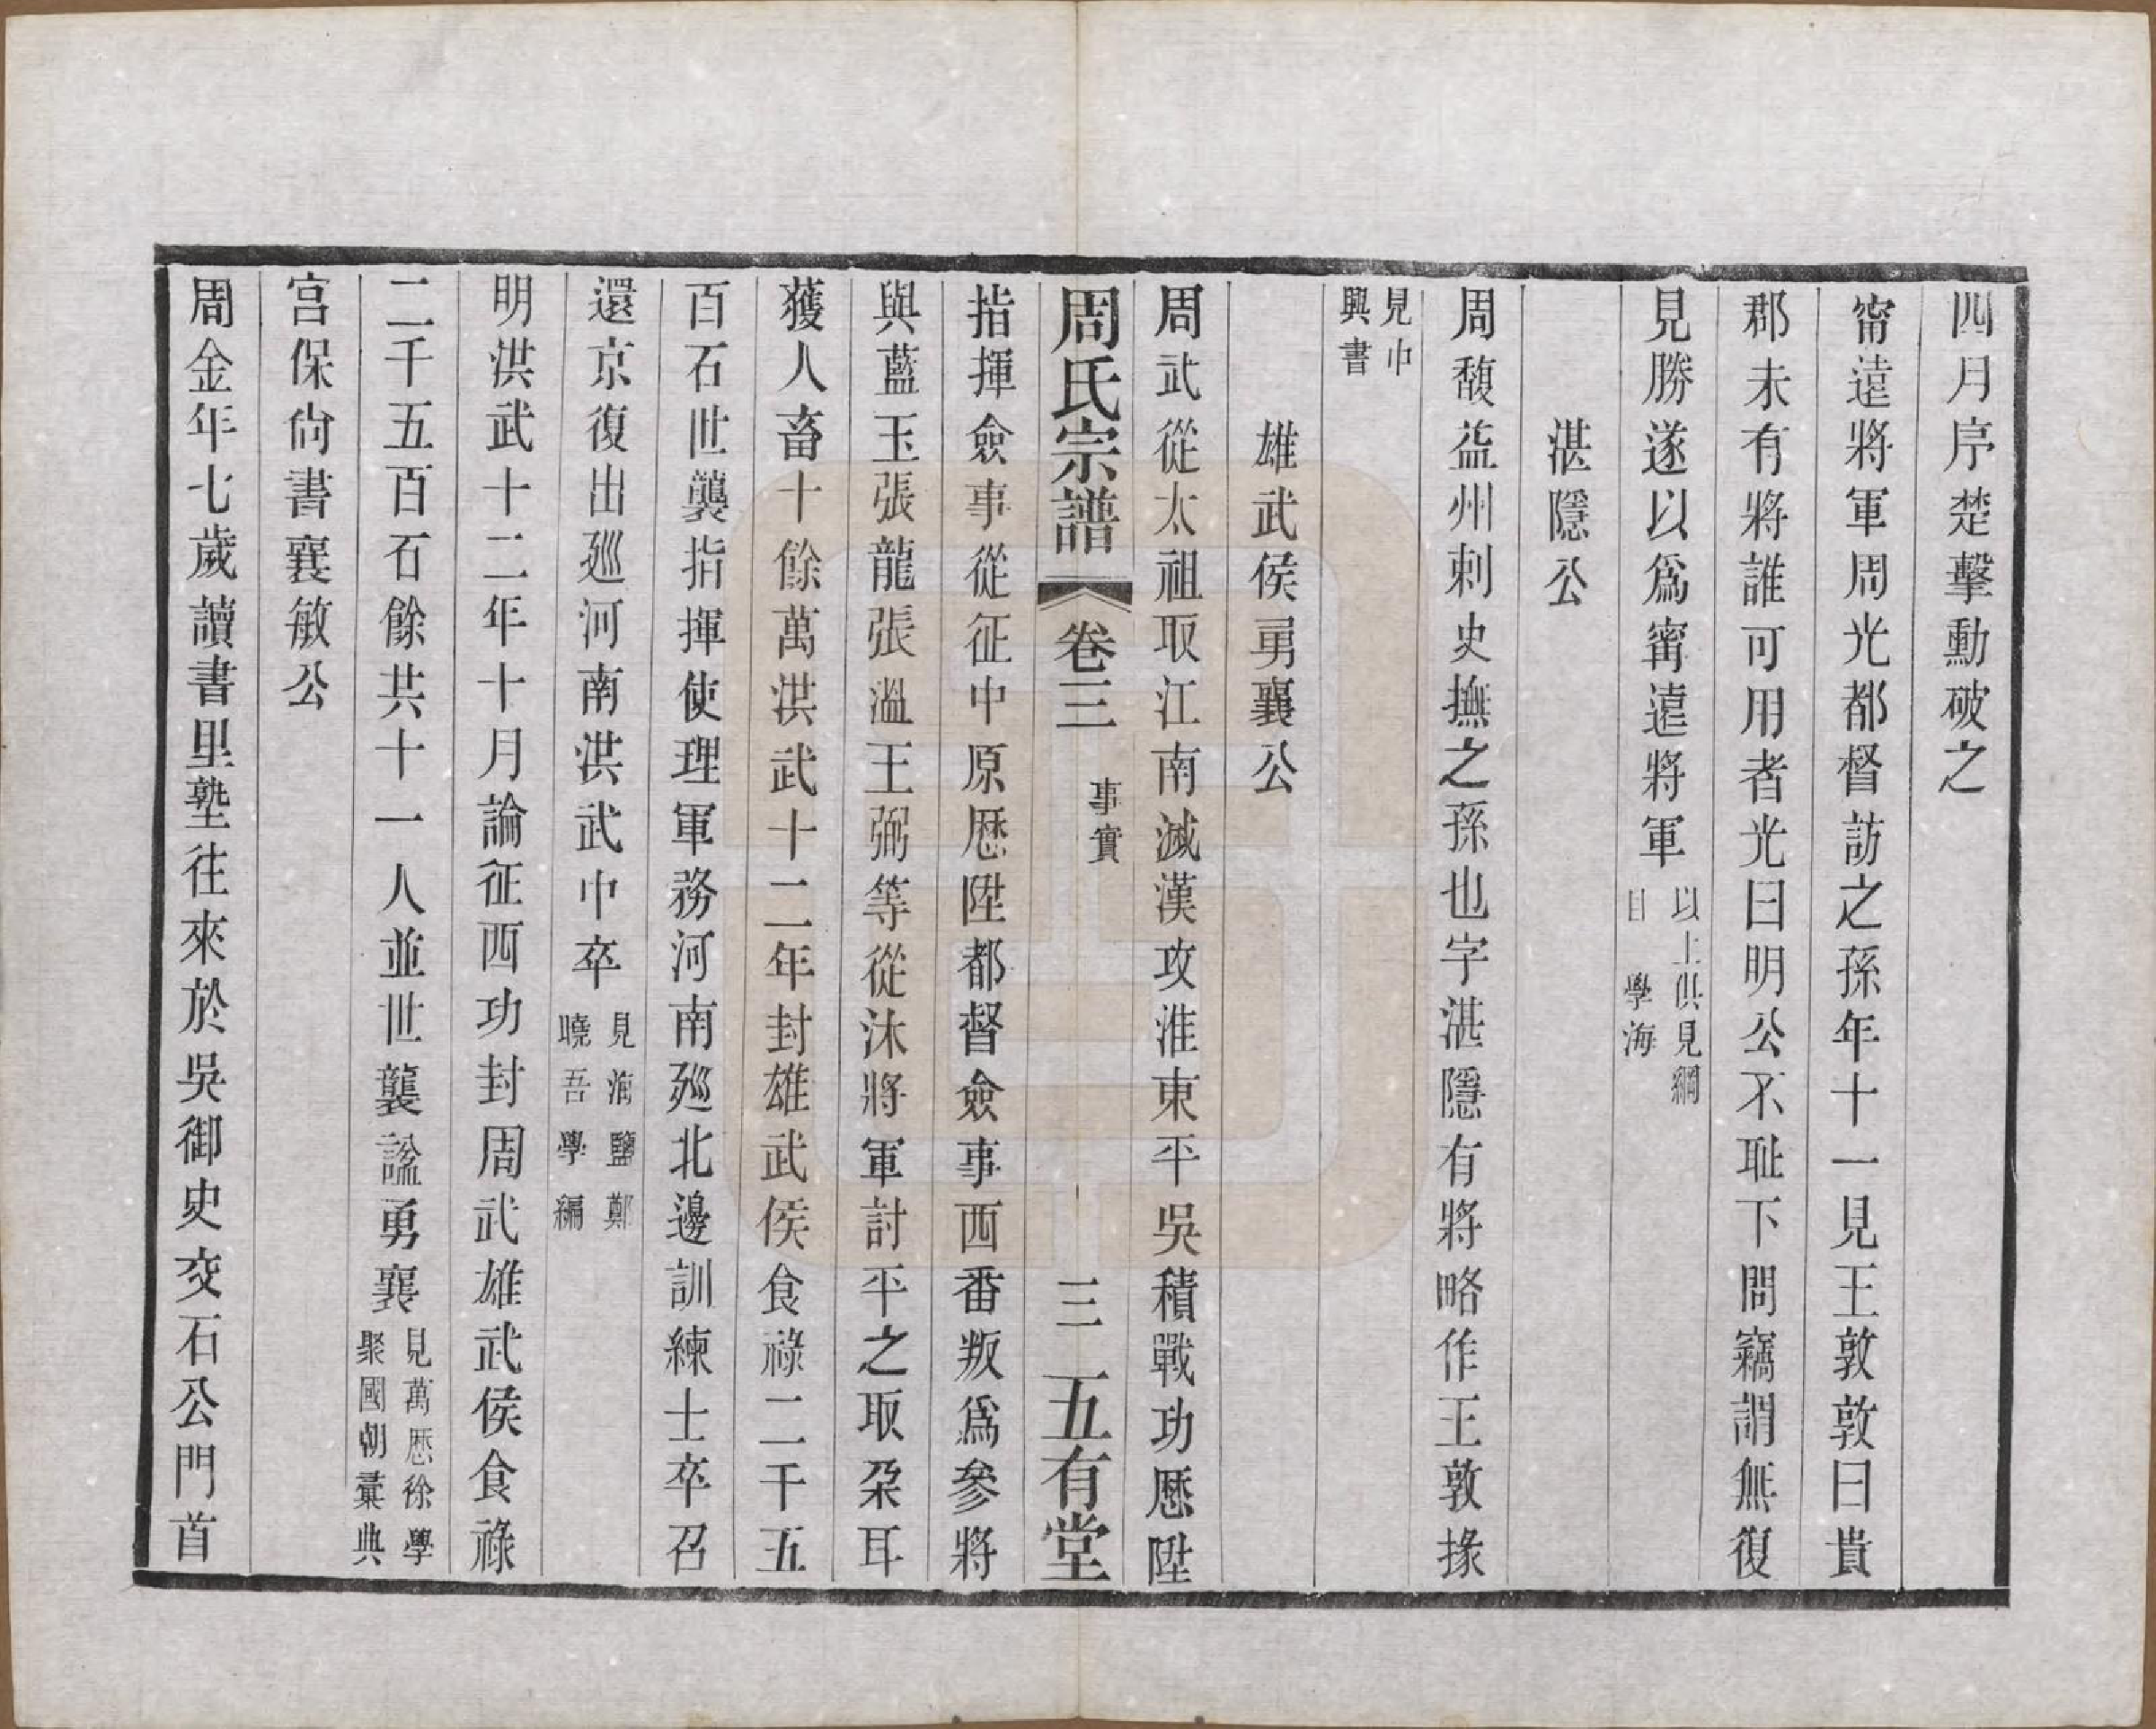 四月序楚擊動破之
甯遠將軍周光都督訪之孫年十一見王敦敦曰貴
郡未有將誰可用者光曰明公不耻下問竊謂無復
見勝遂以爲甯遠將軍
以上俱見綱
目 學海
湛隱公
周馥益州刺史撫之孫也字湛隱有將略作王敦掾
見中
興書
雄武侯勇襄公
周武從太祖取江南滅漢攻淮東平吳積戰功歷陞
周氏宗譜
卷三
事實
三
五有堂
指揮僉事從征中原歷陞都督僉事西番叛爲參將
與藍玉張龍張溫王弼等從沐將軍討平之取朶耳
獲人畜十餘萬洪武十二年封雄武侯食祿二千五
百石世襲指揮使理軍務河南廵北邊訓練士卒召
還京復出廵河南洪武中卒
見海鹽鄭
曉吾學編
明洪武十二年十月論征西功封周武雄武侯食祿
二千五百石餘共十一人並世襲諡勇襄
見萬歷徐學
聚國朝彙典
宮保尙書襄敏公
周金年七歲讀書里塾往來於吳御史交石公門首